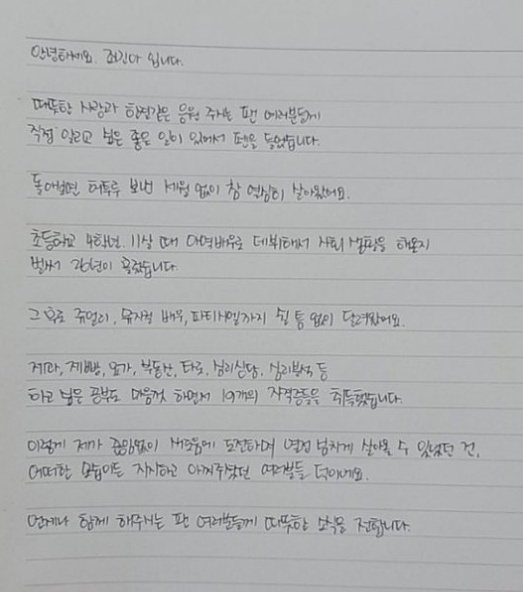 안녕하세요. 조민아 입니다.
따뜻한 사랑과 한결같은 응원 주시는 팬 여러분들께
직접 알리고 싶은 좋은 일이 있어서 펜을 들었습니다.
돌아보면 허투루 보낸 세월 없이 참 열심히 살아왔어요.
초등학교 4학년. 11살 때 아역배우로 데뷔해서 사회 생활을 해온지
벌써 26년이 흘렀습니다.
그 후로 쥬얼리, 뮤지컬 배우, 파티시엘까지 쉴 틈 없이 달려왔어요.
제과, 제빵, 요가, 부동산, 타로, 심리상담, 심리분석 등
하고 싶은 공부도 마음껏 하면서 19개의 자격증들을 취득했습니다.
이렇게 제가 끊임없이 새로움에 도전하며 열정 넘치게 살아올 수 있었던 건,
어떠한 모습이든 지지하고 아껴주셨던 여러분들 덕이네요.
언제나 함께 해주시는 팬 여러분들께 따뜻한 소식을 전합니다.